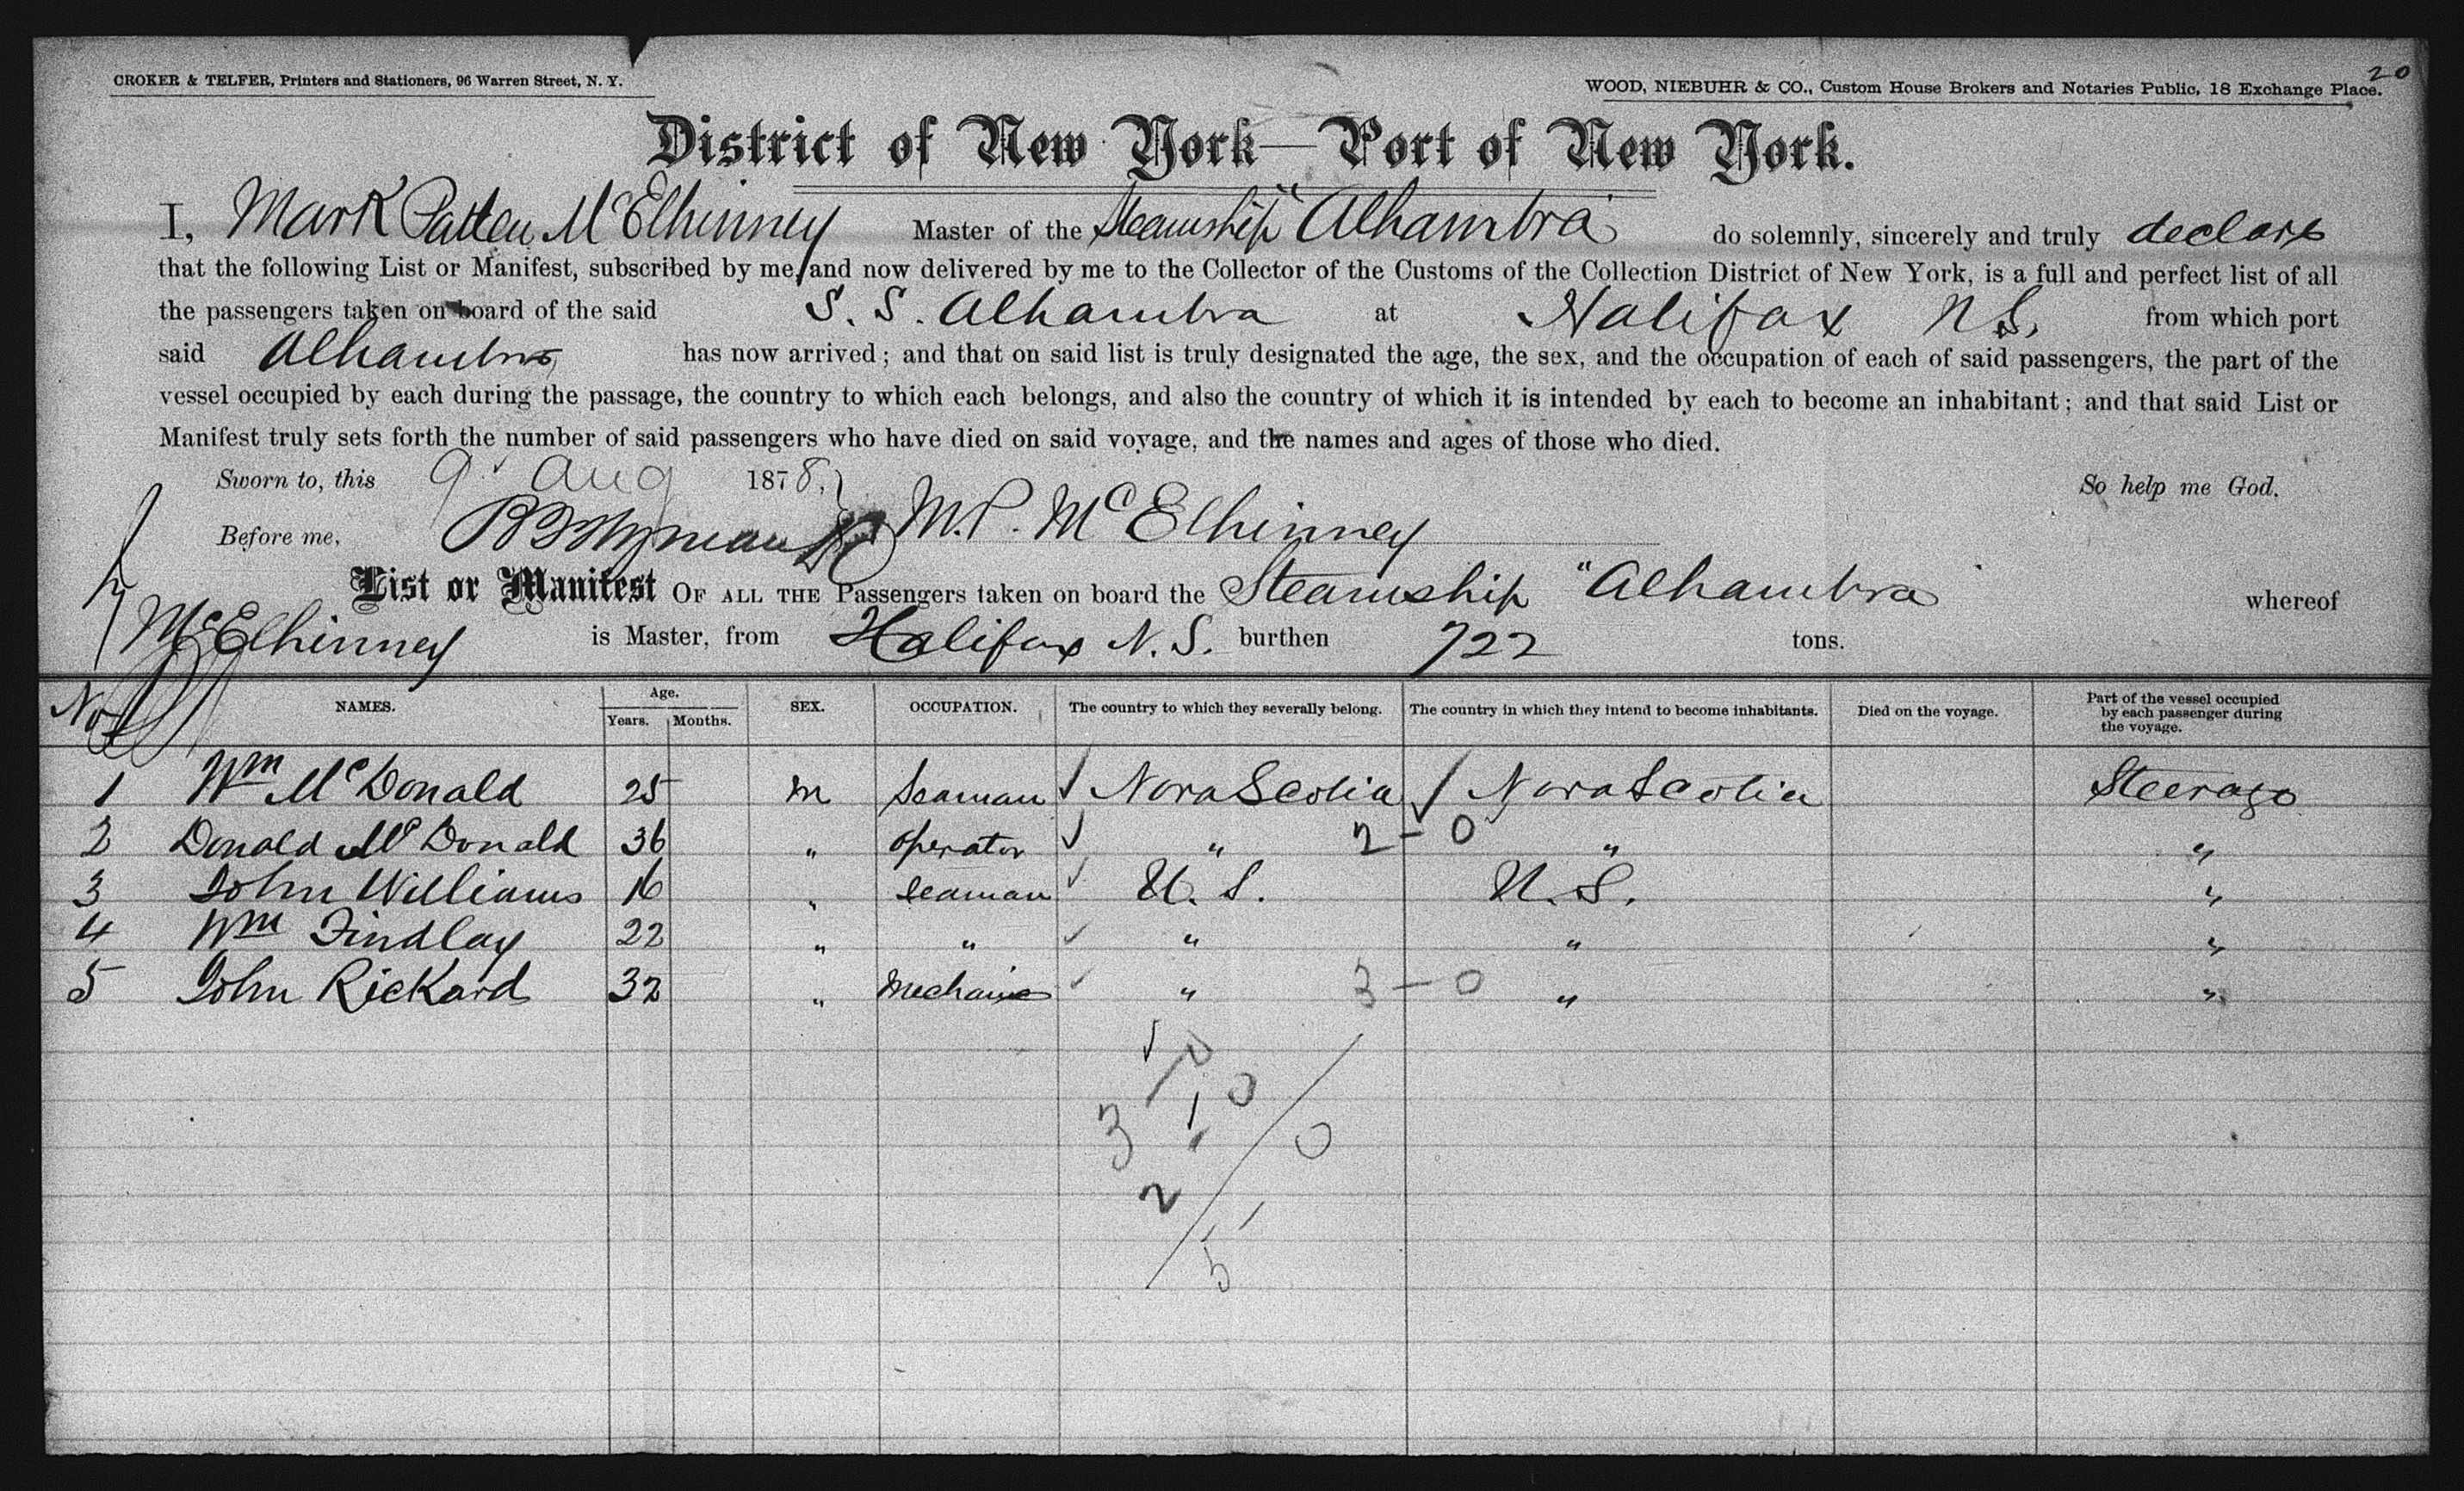 CROKER & TELFER, Printers and Stationers, 96 Warren Street, N. Y.
WOOD, NIEBUHR & CO., Custom House Brokers and Notaries Public, 18 Exchange Place.
20
District of New York—Port of New York.
I, Mark Patten McElhinney Master of the Steamship "Alhambra" do solemnly, sincerely and truly declare
that the following List or Manifest, subscribed by me, and now delivered by me to the Collector of the Customs of the Collection District of New York, is a full and perfect list of all
the passengers taken on board of the said S. S. Alhambra at Halifax N S. from which port
said Alhambra has now arrived; and that on said list is truly designated the age, the sex, and the occupation of each of said passengers, the part of the
vessel occupied by each during the passage, the country to which each belongs, and also the country of which it is intended by each to become an inhabitant; and that said List or
Manifest truly sets forth the number of said passengers who have died on said voyage, and the names and ages of those who died.
Sworn to, this 9 Aug 1878, So help me God.
Before me, M. P. McElhinney
List or Manifest OF ALL THE Passengers taken on board the Steamship "Alhambra whereof
McElhinney is Master, from Halifax N. S. burthen 722 tons.
No NAMES. Age. Years. Months. SEX. OCCUPATION. The country to which they severally belong. The country in which they intend to become inhabitants. Died on the voyage. Part of the vessel occupied by each passenger during the voyage.
1 Wm McDonald 25 m Seaman ✓ Nova Scotia ✓ Nova Scotia Steerage
2 Donald McDonald 36 " operator ✓ " 2 - 0 " "
3 John Williams 16 " seaman ✓ U. S. U. S. "
4 Wm Findlay 22 " " ✓ " " "
5 John Rickard 32 " Mechanic ✓ " 3 - 0 " "
3 1 0
0
2
5